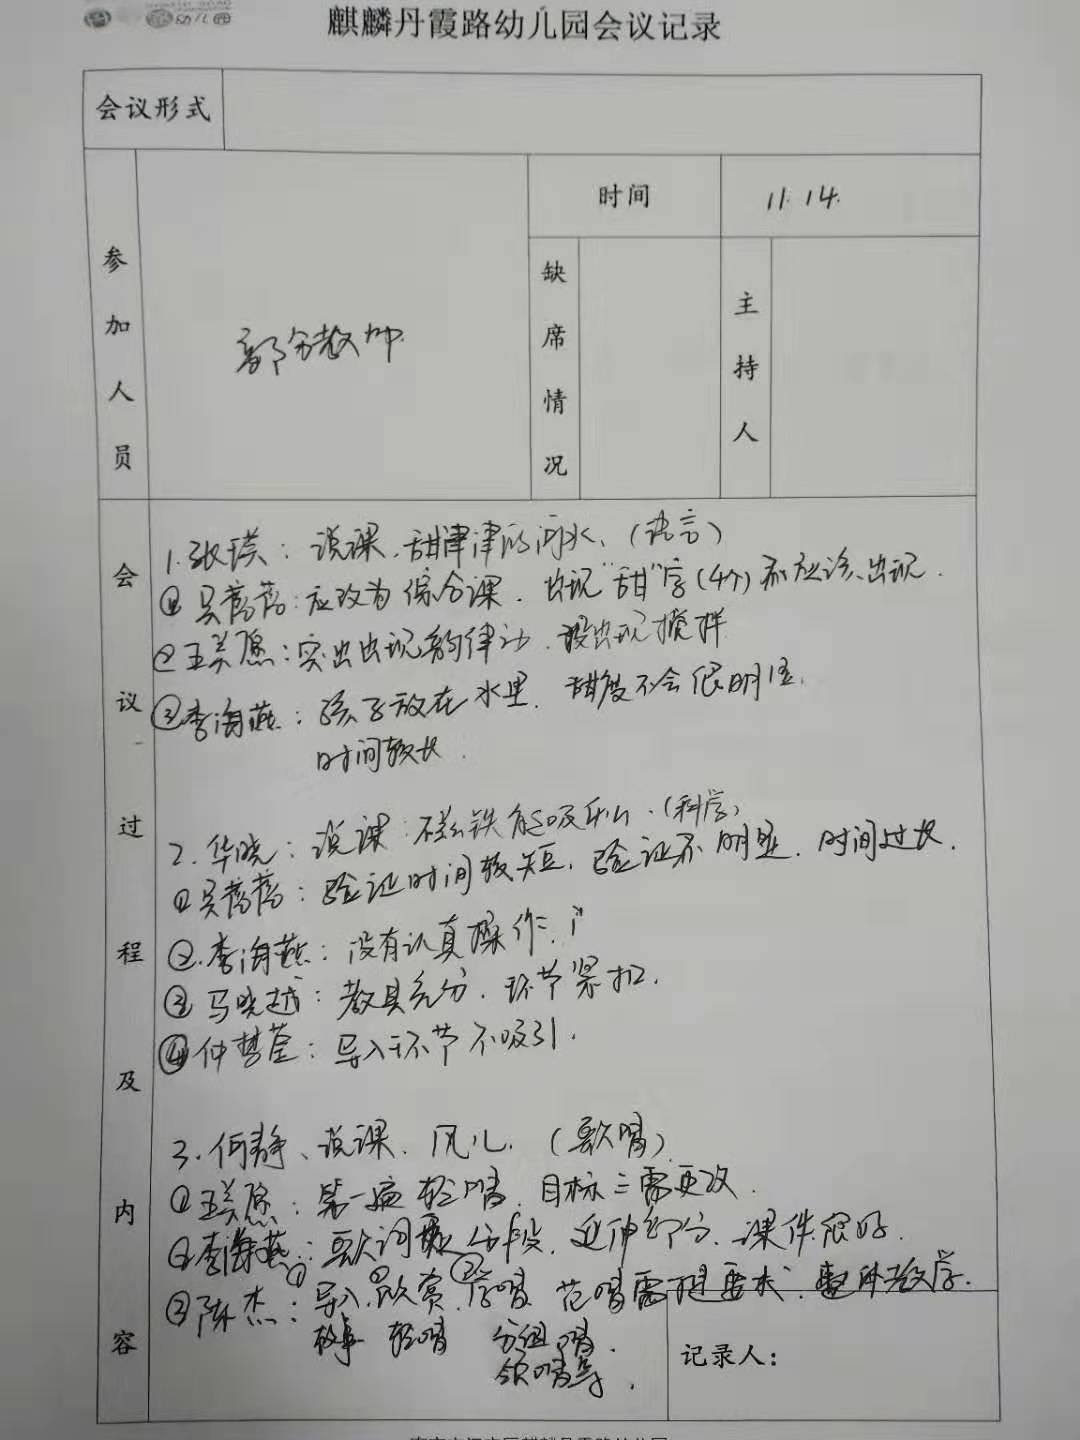 幼儿园
麒麟丹霞路幼儿园会议记录
会议形式
参加人员
部分教师
时间
11.14.
缺席情况
主持人
会议过程及内容
1.张瑛：说课.甜津津的河水、(语言)
①吴蓓蓓：应改为综合课.出现"甜"字(4个)不应该出现.
②王关愿：突出出现韵律计.没出现搅拌
③李海燕：孩子放在水里.甜度不会很明显.
时间较长.
2.华晓：说课:磁铁能吸什么.(科学)
①吴蓓蓓：验证时间较短.验证不明显.时间过长.
②.李海燕：没有认真操作.
③马晓越：教具充分.环节紧扣.
④仲慧莹：导入环节不吸引.
3.何静、说课、风儿.(歌唱)
①王关愿：第一遍轻唱.目标三需更改.
②李海燕：歌词要分段.延伸部分.课件很好.
③陈杰：①导入.①欣赏.②学唱 范唱需提要求.整体教学.
故事 轻唱 分组唱.
领唱等.
记录人：